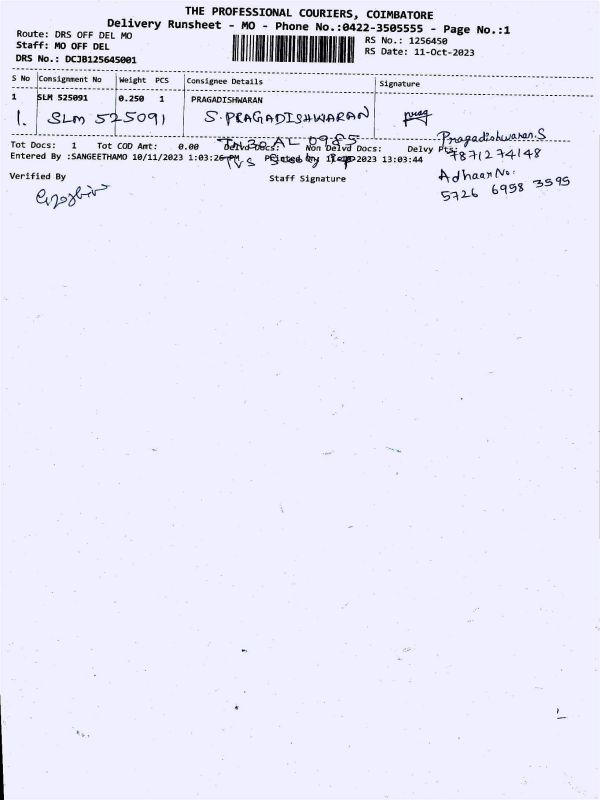 THE PROFESSIONAL COURIERS, COIMBATORE
Delivery Runsheet - MO - Phone No.:0422-3505555 - Page No.:1
Route: DRS OFF DEL MO
RS No.: 1256450
Staff: MO OFF DEL
RS Date: 11-Oct-2023
DRS No.: DCJB125645001
S No Consignment No Weight PCS Consignee Details Signature
1 SLM 525091 0.250 1 PRAGADISHWARAN
1. SLM 525091 S.PRAGADISHWARAN
Pragadishwaran.S
Tot Docs: 1 Tot COD Amt: 0.00 Delvd Docs: Non Delvd Docs: Delvy Pts:
7871274148
Entered By :SANGEETHAMO 10/11/2023 1:03:26 PM 2023 13:03:44
TVS
Adhaar No:
5726 6958 3595
Verified By Staff Signature